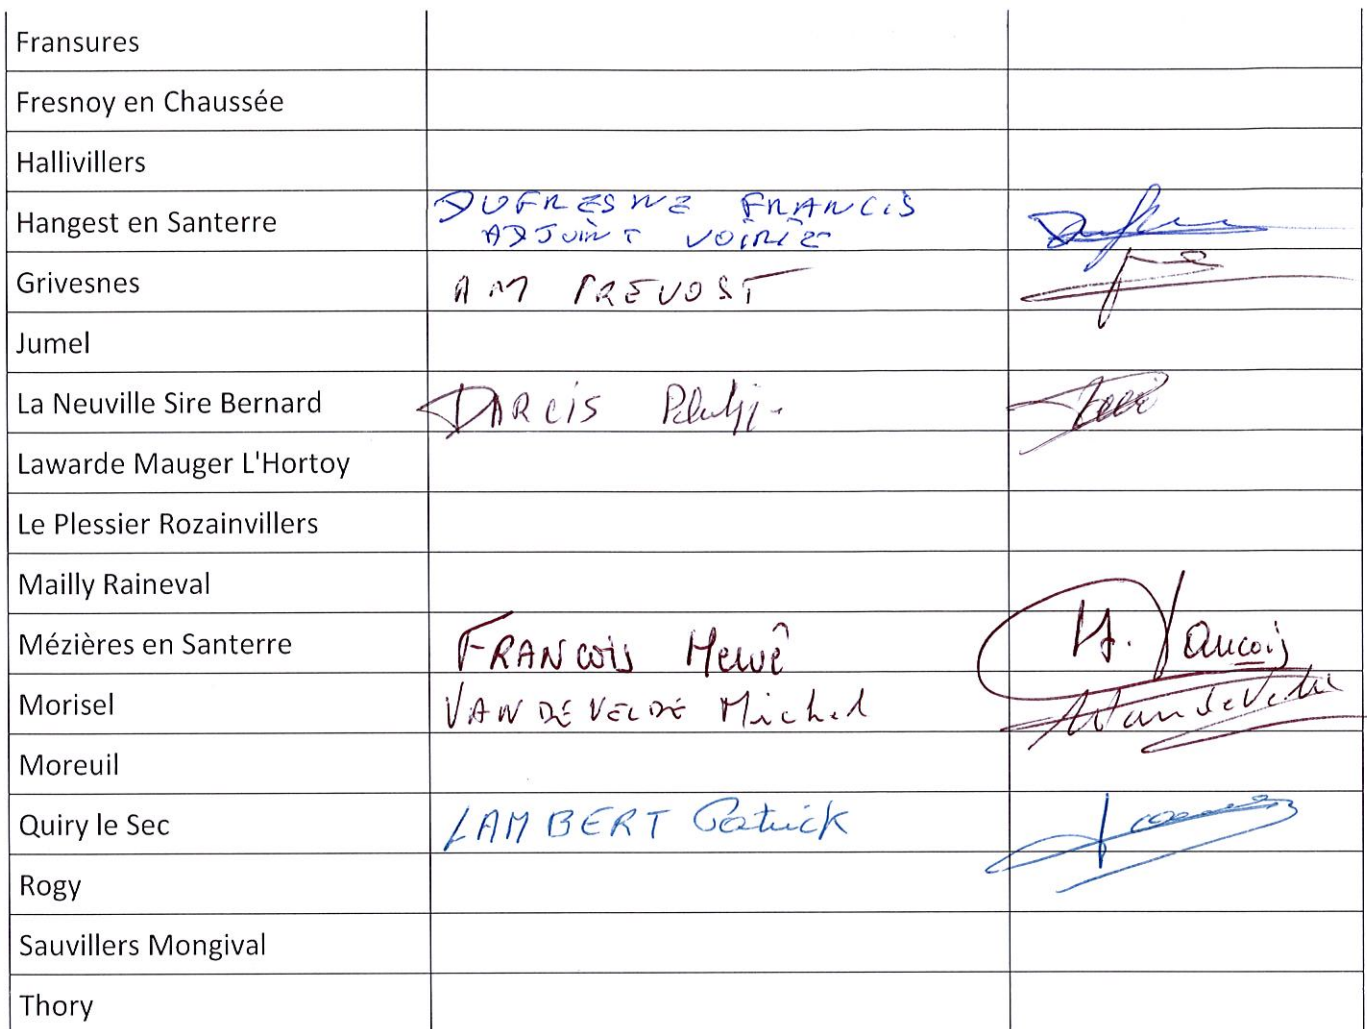 Fransures
Fresnoy en Chaussée
Hallivillers
Hangest en Santerre DUFRESNE FRANCIS
ADJOINT VOIRIE
Grivesnes AM PREVOST
Jumel
La Neuville Sire Bernard DARCIS
Lawarde Mauger L'Hortoy
Le Plessier Rozainvillers
Mailly Raineval
Mézières en Santerre FRANCOIS Hervé H. Francois
Morisel VANDEVELDE Michel
Moreuil
Quiry le Sec LAMBERT Patrick
Rogy
Sauvillers Mongival
Thory